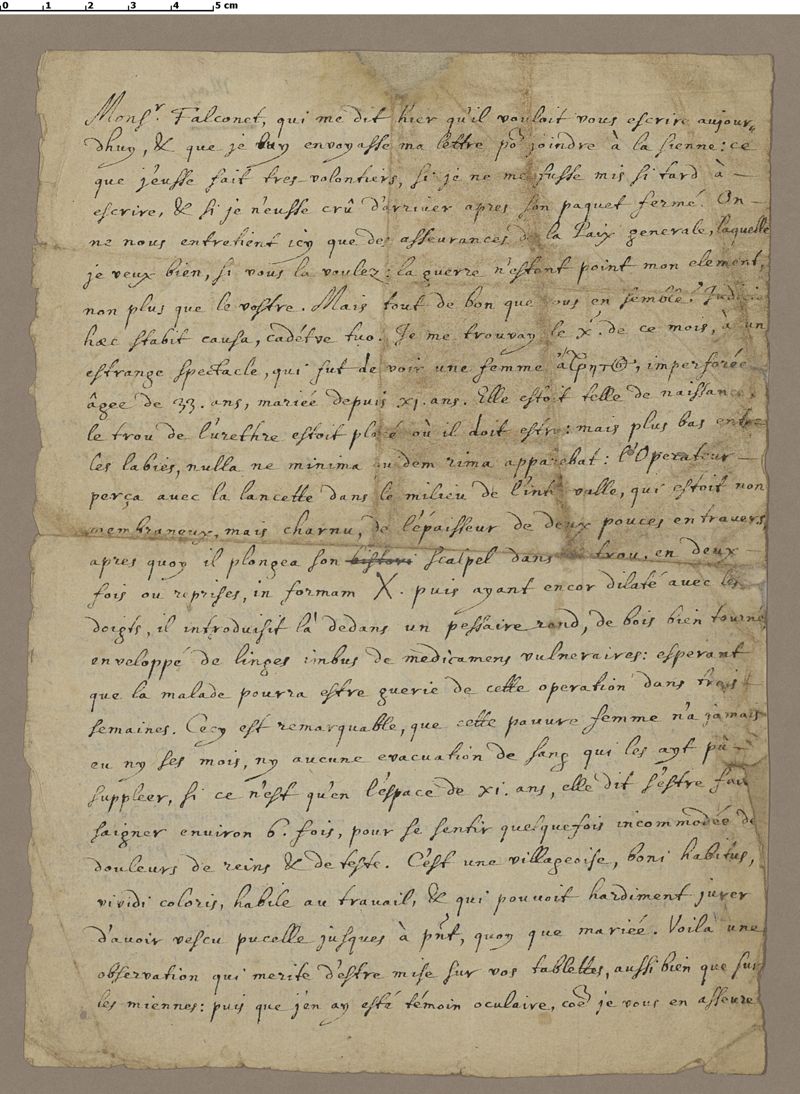 0 1 2 3 4 5 cm
Monsr. Falconet, qui me dit hier qu'il vouloit vous escrire aujour-
dhuy, & que je luy envoyasse ma lettre po.r joindre à la sienne: ce
que j'eusse fait tres volontiers, si je ne me fusse mis si tard à
escrire, & si je n'eusse crû d'arriver apres son paquet fermé. On
ne nous entretient icy que des asseurances de la Paix generale, laquelle
je veux bien, si vous la voulez: la guerre n'estant point mon element,
non plus que le vostre. Mais tout de bon que vous en semble? Judicio
hæc stabit causa, cadétve tuo. Je me trouvay le x. de ce mois, à un
estrange spectacle, qui fut de voir une femme imperforée
âgee de 33. ans, mariée depuis xj. ans. Elle estoit telle de naissance,
le trou de l'urethre estoit placé où il doit estre: mais plus bas entre
les labies, nulla ne minima quidem rima apparebat: l'Operateur
perça avec la lancette dans le milieu de l'intervalle, qui estoit non
membraneux, mais charnu, de l'épaisseur de deux pouces en travers,
apres quoy il plongea son bistori scalpel dans trou, en deux
fois ou reprises, in formam X. puis ayant encor dilaté avec les
doigts, il introduisit là dedans un pessaire rond, de bois bien tourné,
enveloppé de linges imbus de medicamens vulneraires: esperant
que la malade pourra estre guerie de cette operation dans trois
semaines. Cecy est remarquable, que cette pauvre femme n'a jamais
eu ny ses mois, ny aucune evacuation de sang qui les ayt pû
suppleer, si ce n'est qu'en l'espace de xi. ans, elle dit s'estre fait
saigner environ 6. fois, pour se sentir quelquefois incommodée de
douleurs de reins & de teste. C'est une villageoise, boni habitus,
vividi coloris, habile au travail, & qui pouvoit hardiment jurer
d'avoir vescu pucelle jusques à pñt, quoy que mariée. Voilà une
observation qui merite d'estre mise sur vos tablettes, aussi bien que sur
les miennes: puis que j'en ay esté témoin oculaire, coe je vous en asseure